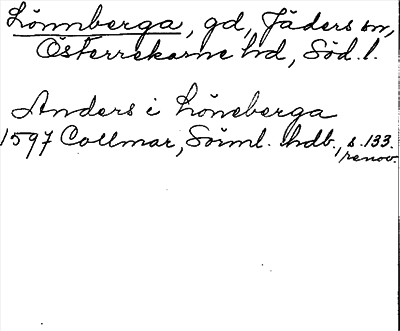 Lönnberga, gd, Jäders sn,
Österrekarne hd, Söd. l.
Anders i Löneberga
1597 Collmar, Sörml. hdb., s. 133.
renov.